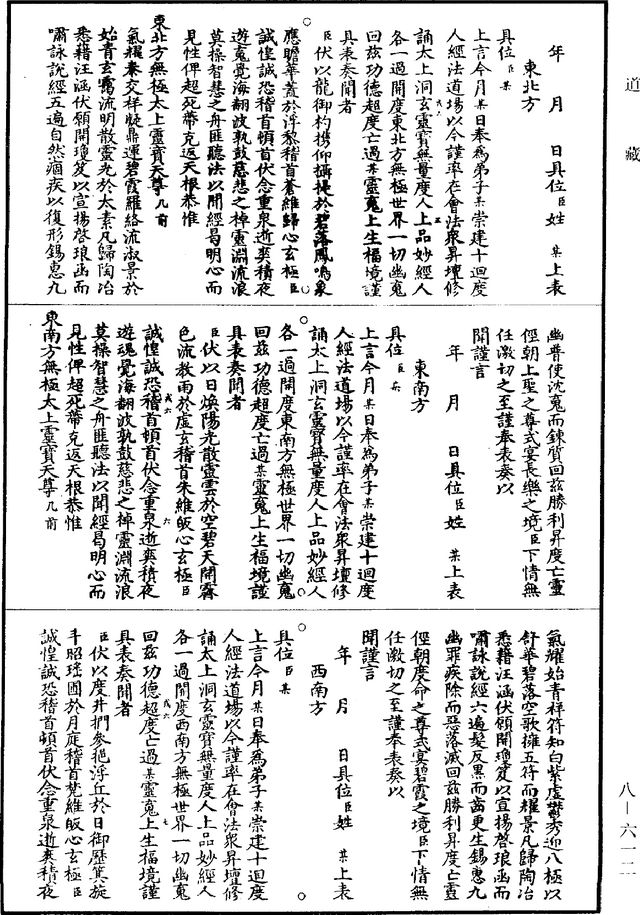 道藏
年　月　日具位臣姓　某上表
東北方
具位臣某
上言今月某日奉為弟子某崇建十迴度
人經法道場以今謹率在會法眾昇壇修
誦太上洞玄靈寶無量度人上品妙經人
各一過開度東北方無極世界一切幽䰟
回茲功德超度亡過某靈䰟上生福境謹
具表奏聞者
臣伏以龍御杓攜仰攝提於碧落鳳鳴泉
應瞻華蓋於浮黎稽首蒼維歸心玄極臣
誠惶誠恐稽首頓首伏念重泉逝爽積夜
遊䰟覺海翻波孰鼓慈悲之棹靈淵流浪
莫操智慧之舟匪聽法以聞經曷明心而
見性俾超死蔕克返天根恭惟
東北方無極太上靈寶天尊几前
氣耀交祥凝鼎運碧霞羅絡流淑景於
始青玄流明散靈光於太素凡歸陶冶
悉藉汪涵伏願開瓊笈以宣揚啓琅函而
嘯詠說經五遍自然痼疾以復形錫惠九
幽普使沈䰟而鍊質回茲勝利昇度亡靈
徑朝上聖之尊式宴長樂之境臣下情無
任激切之至謹奉表奏以
聞謹言
年　月　日具位臣姓　某上表
東南方
具位臣某
上言今月某日奉為弟子某崇建十迴度
人經法道場以今謹率在會法眾昇壇修
誦太上洞玄靈寶無量度人上品妙經人
各一過開度東南方無極世界一切幽䰟
回茲功德超度亡過某靈䰟上生福境謹
具表奏聞者
臣伏以日煥陽光散靈雲於空碧天開霽
色流教雨於虛玄稽首朱維皈心玄極臣
誠惶誠恐稽首頓首伏念重泉逝爽積夜
遊魂覺海翻波孰鼓慈悲之棹靈淵流浪
莫操智慧之舟匪聽法以聞經曷明心而
見性俾超死蔕克返天根恭惟
東南方無極太上靈寶天尊几前
氣耀始青祥符知白紫虛鬱秀迎八極以
舒華碧落空歌擁五符而耀景凡歸陶冶
悉藉汪涵伏願開瓊笈以宣揚啓琅函而
嘯詠說經六遍髮反黑而齒更生錫惠九
幽罪疾除而惡落滅回茲勝利昇度亡靈
徑朝度命之尊式宴碧霞之境臣下情無
任激切之至謹奉表奏以
聞謹言
年　月　日具位臣姓　某上表
西南方
具位臣某
上言今月某日奉為弟子某崇建十迴度
人經法道場以今謹率在會法眾昇壇修
誦太上洞玄靈寶無量度人上品妙經人
各一過開度西南方無極世界一切幽䰟
回茲功德超度亡過某靈䰟上生福境謹
具表奏聞者
臣伏以度井捫參挹浮丘於日御歷箕旋
斗昭瑤圃於月庭稽首梵維皈心玄極臣
誠惶誠恐稽首頓首伏念重泉逝爽積夜
八—六一二